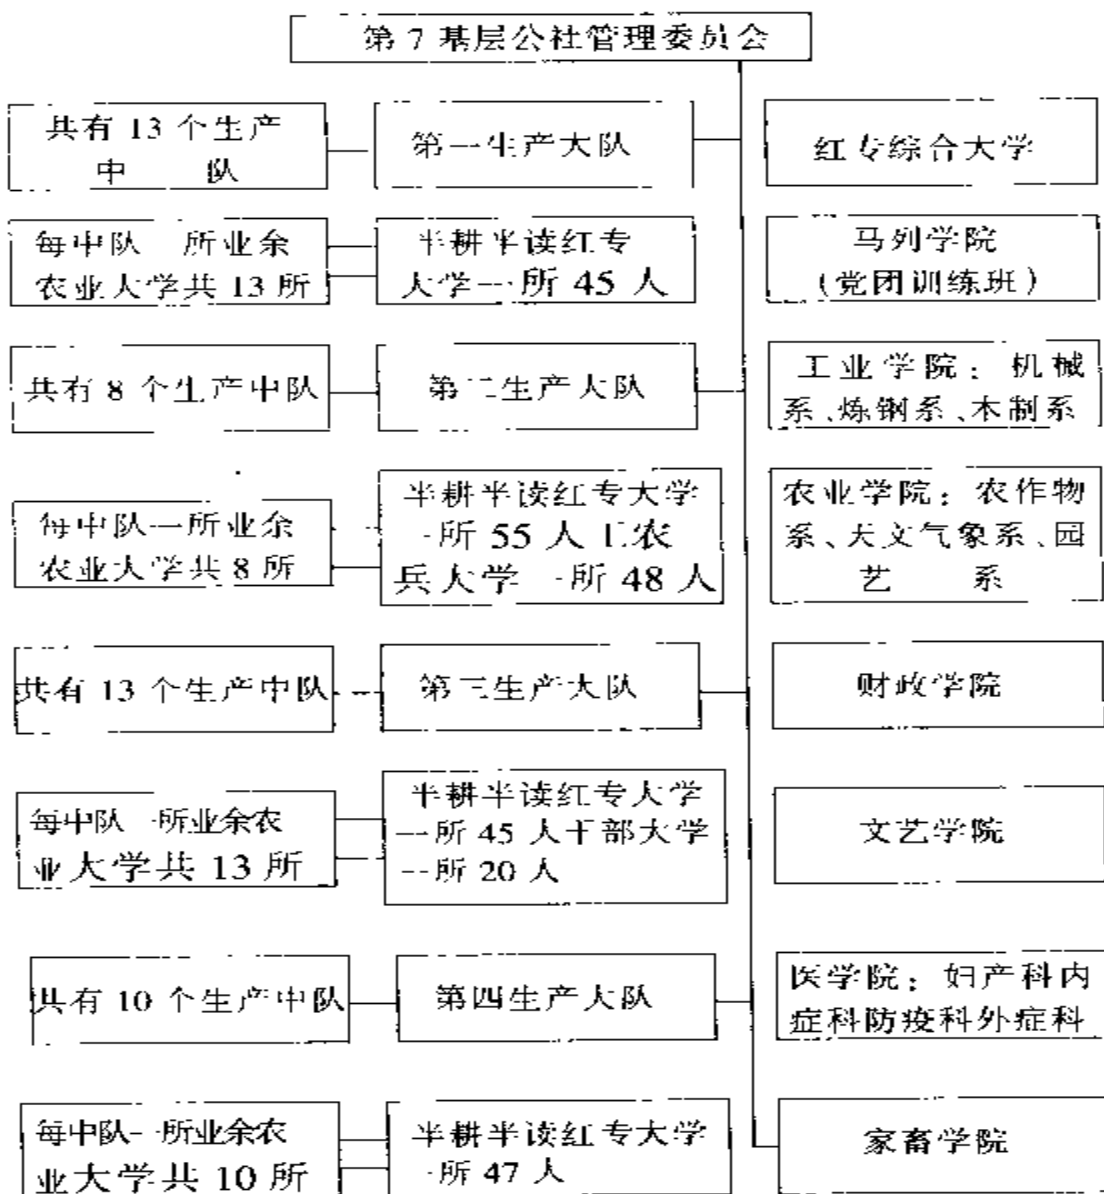 第 7 基层公社管理委员会
共有 13 个生产
中 队
第一生产大队
红专综合大学
每中队 所业余
农业大学共 13 所
半耕半读红专
大学一所 45 人
马列学院
(党团训练班)
共有 8 个生产中队
第二生产大队
工业学院：机械
系、炼钢系、木制系
每中队一所业余
农业大学共 8 所
半耕半读红专大学
一所 55 人工农
兵大学一所 48 人
农业学院：农作物
系、天文气象系、园
艺 系
共有 13 个生产中队
第三生产大队
财政学院
每中队一所业余农
业大学共 13 所
半耕半读红专大学
一所 45 人干部大学
一所 20 人
文艺学院
共有 10 个生产中队
第四生产大队
医学院：妇产科内
症科防疫科外症科
每中队一所业余农
业大学共 10 所
半耕半读红专大学
一所 47 人
家畜学院